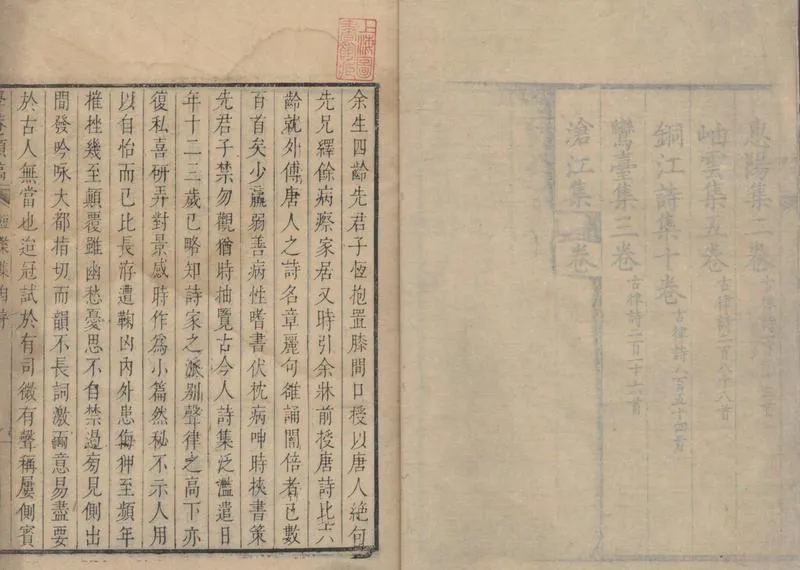 惠陽集二卷
岫雲集五卷 古律詩一百八十八首
銅江詩集十卷 古律詩八百五十四首
鸞臺集三卷 古律詩二百一十六首
滄江集 卷
上海圖書館藏
余生四齡先君子恆抱置膝間口授以唐人絶句
先兄繹餘病瘵家居又時引余牀前授唐詩比六
齡就外傅唐人之詩名章麗句雒誦闇倍者已數
百首矣少羸弱善病性嗜書伏枕病呻時挾書策
先君子禁勿觀猶時抽覽古今人詩集泛濫遣日
年十二三歲已略知詩家之派别聲律之高下亦
復私喜硏弄對景感時作爲小篇然秘不示人用
以自怡而已比長洊遭鞠凶內外患侮狎至頻年
摧挫幾至顛覆雖幽愁憂思不自禁遏旁見側出
間發吟咏大都指切而韻不長詞激而意易盡要
於古人無當也迨冠試於有司微有聲稱屢側賓